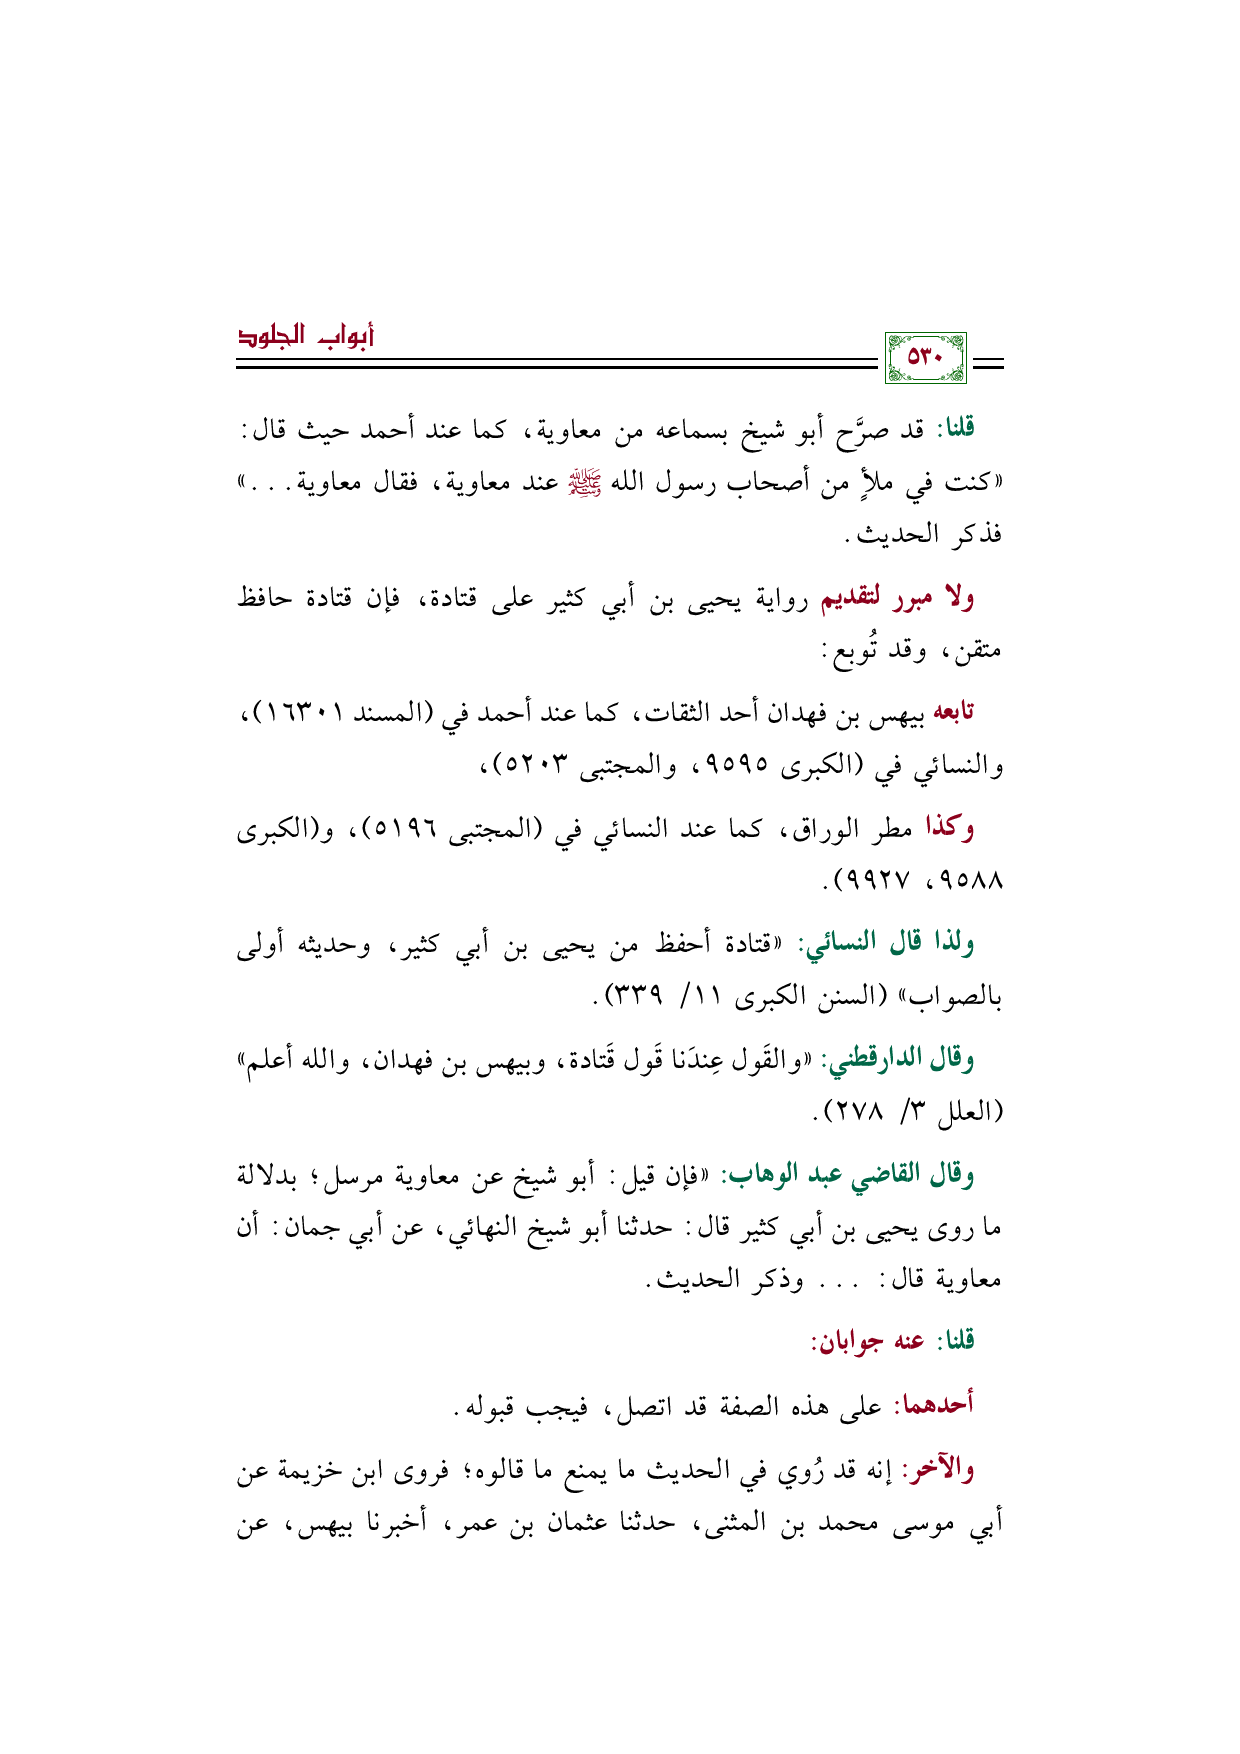 أبواب الجلود
٥٣٠
قلنا: قد صرَّح أبو شيخ بسماعه من معاوية، كما عند أحمد حيث قال:
«كنت في ملأٍ من أصحاب رسول الله ﷺ عند معاوية، فقال معاوية...»
فذكر الحديث.
ولا مبرر لتقديم رواية يحيى بن أبي كثير على قتادة، فإن قتادة حافظ
متقن، وقد تُوبع:
تابعه بيهس بن فهدان أحد الثقات، كما عند أحمد في (المسند ١٦٣٠١)،
والنسائي في (الكبرى ٩٥٩٥، والمجتبى ٥٢٠٣)،
وكذا مطر الوراق، كما عند النسائي في (المجتبى ٥١٩٦)، و(الكبرى
٩٥٨٨، ٩٩٢٧).
ولذا قال النسائي: «قتادة أحفظ من يحيى بن أبي كثير، وحديثه أولى
بالصواب» (السنن الكبرى ١١/ ٣٣٩).
وقال الدارقطني: «والقَول عِندَنا قَول قَتادة، وبيهس بن فهدان، والله أعلم»
(العلل ٣/ ٢٧٨).
وقال القاضي عبد الوهاب: «فإن قيل: أبو شيخ عن معاوية مرسل؛ بدلالة
ما روى يحيى بن أبي كثير قال: حدثنا أبو شيخ النهائي، عن أبي جمان: أن
معاوية قال: ... وذكر الحديث.
قلنا: عنه جوابان:
أحدهما: على هذه الصفة قد اتصل، فيجب قبوله.
والآخر: إنه قد رُوي في الحديث ما يمنع ما قالوه؛ فروى ابن خزيمة عن
أبي موسى محمد بن المثنى، حدثنا عثمان بن عمر، أخبرنا بيهس، عن